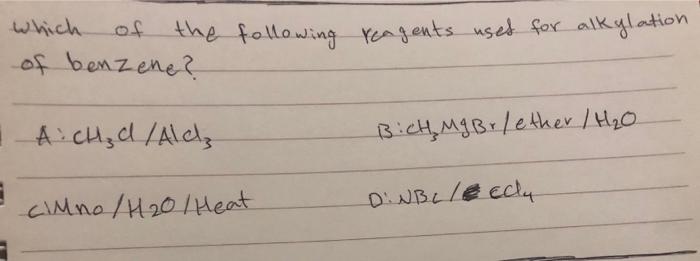 which of the following reagents used for alkylation
of benzene?
A: CH3Cl /AlCl3 B: CH3MgBr/ether/H2O
C: Mno/H2O/Heat D: NBC/ CCl4